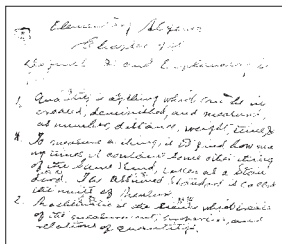 Elements of Algebra
Chapter 1st
Definitions and Explanatory
1. Quantity is anything which can be in
creased, diminished, and measured,
as number, distance, weight, time &
To measure a thing, is to find how ma
ny times, it contains some other thing
of the same kind, taken as a Stan
dard. The assumed standard is called
the unit of measure
2. Mathematics is the science which treats
of the measurement, properties, and
relations of quantities.